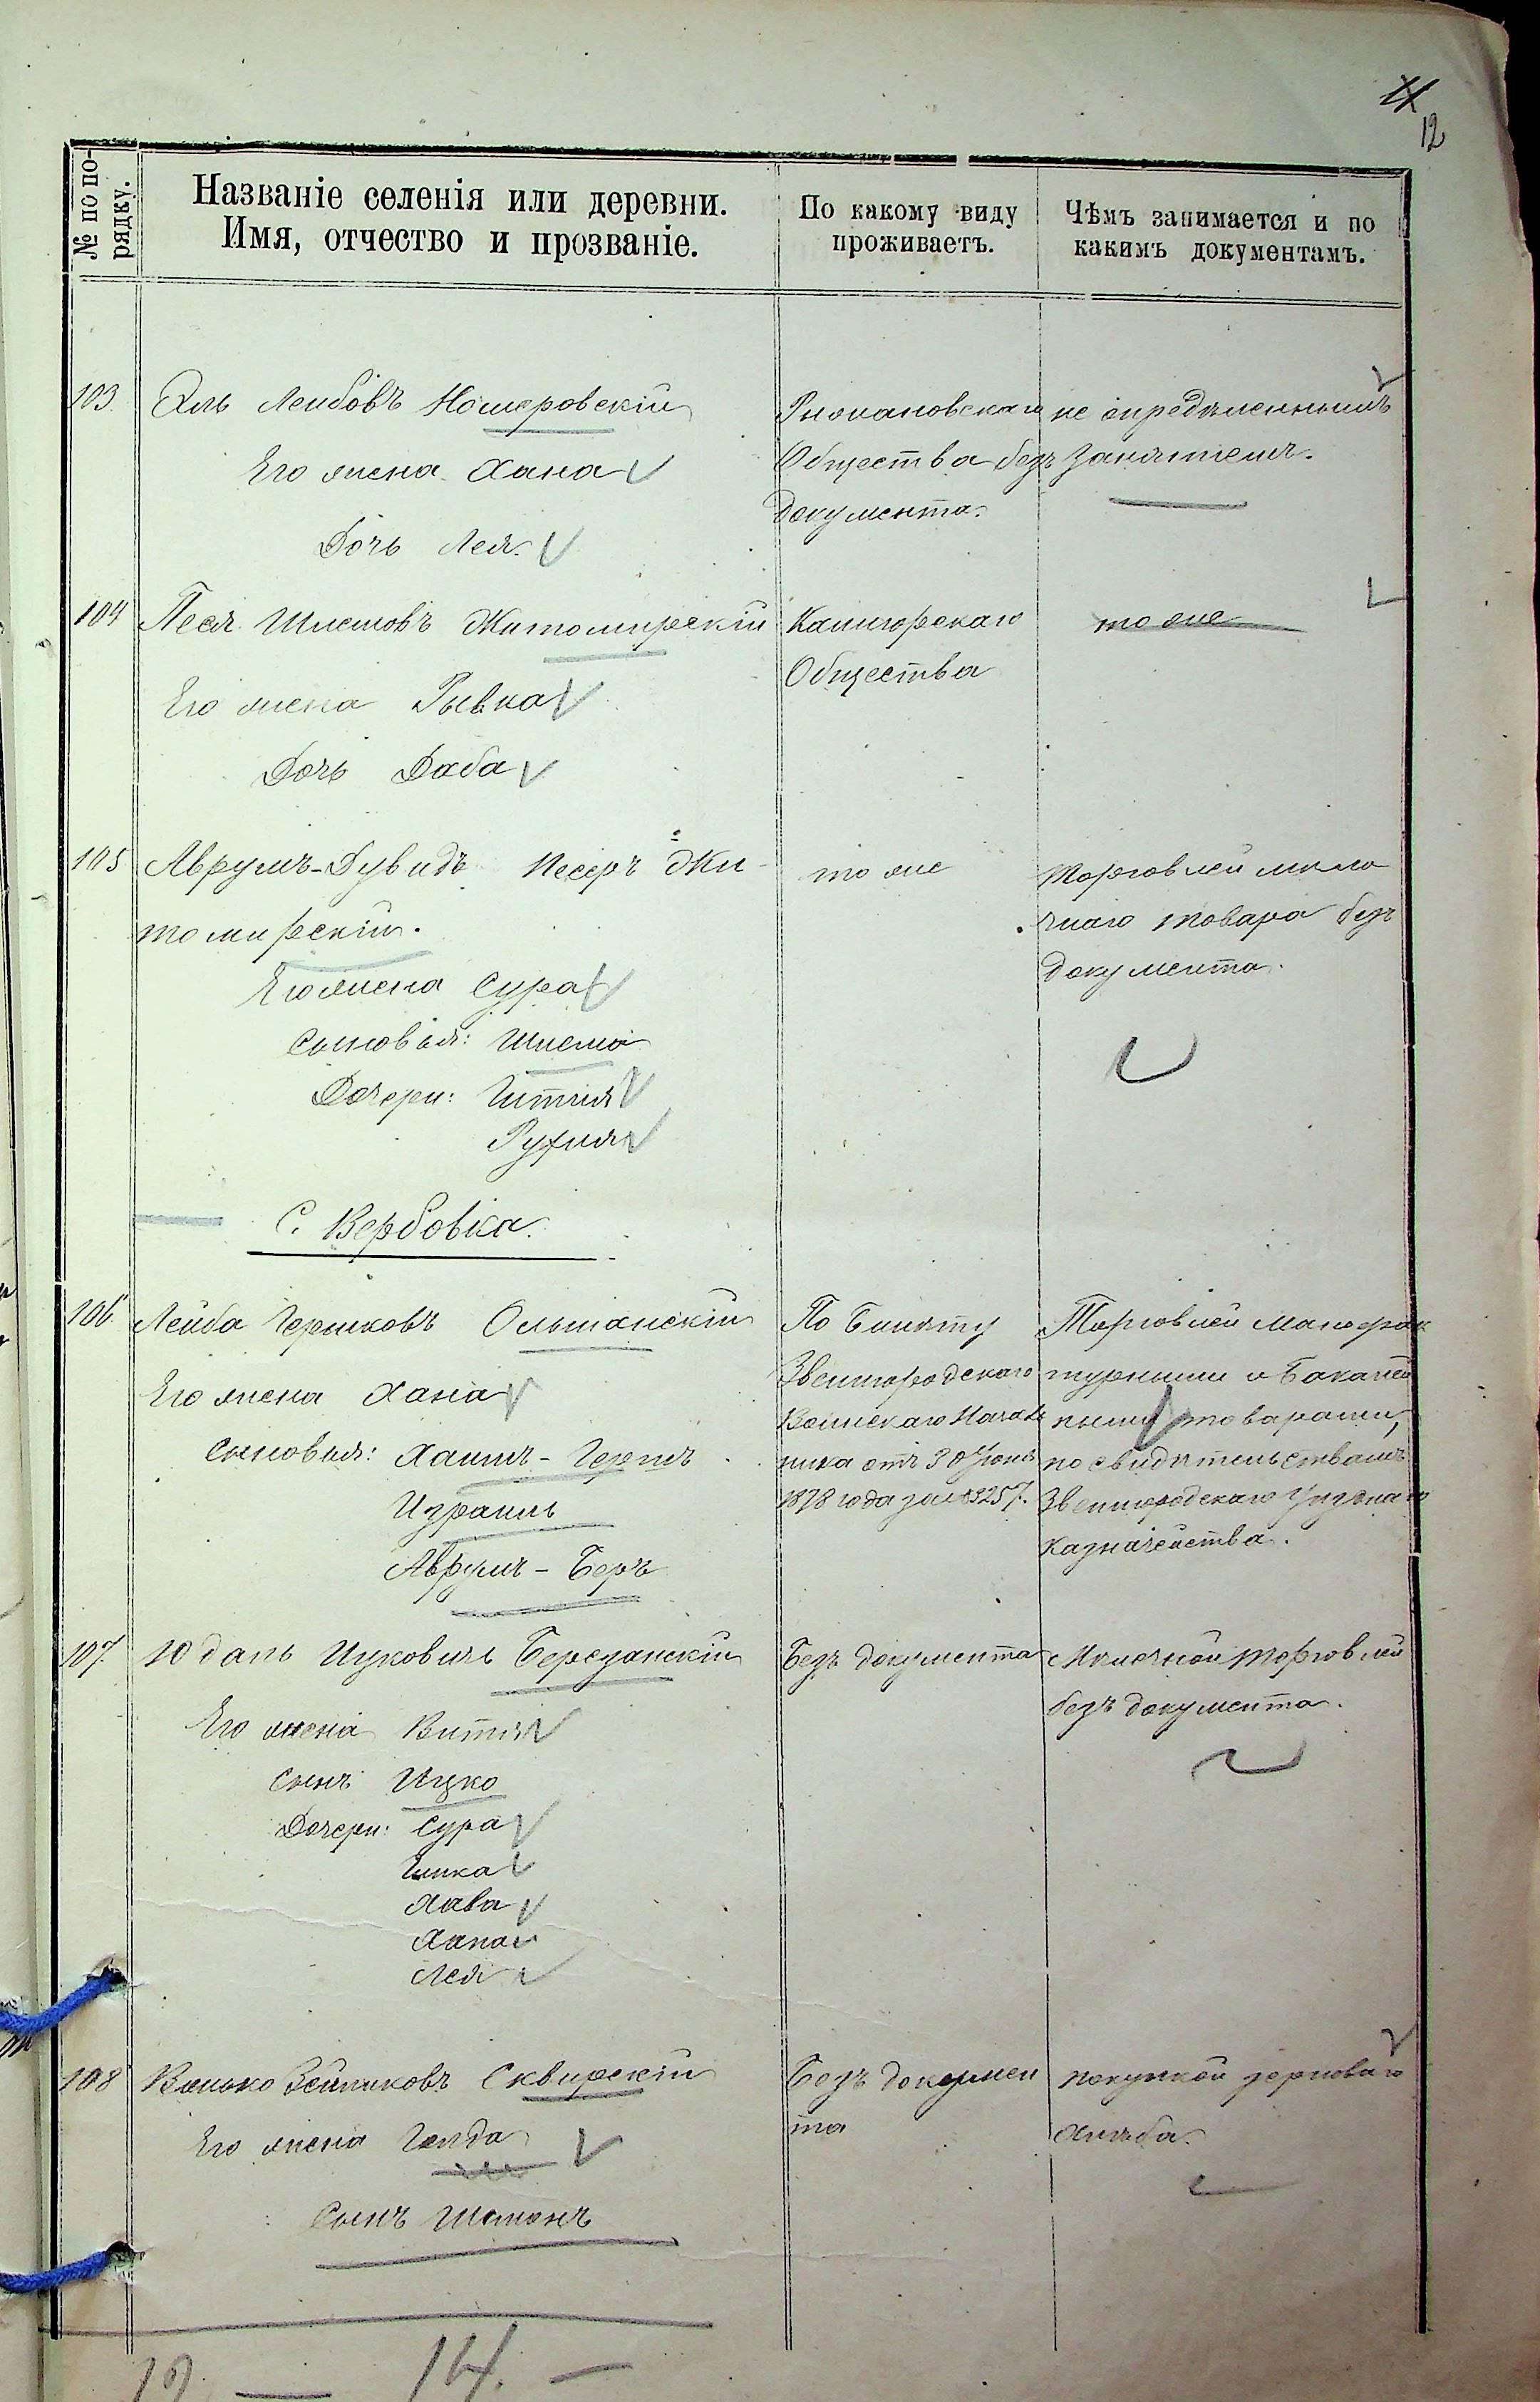 11
12
№ по по-
рядку.
Названіе селенія или деревни.
Имя, отчество и прозваніе.
По какому виду
проживаетъ.
Чѣмъ занимается и по
какимъ документамъ.
103.
Эль Лейбовъ
Его жена Хана
Дочь Лея.
Общества безъ
документа.
не опредѣленнымъ
занятіемъ.
104
Шлемовъ Житомирскій
Его жена Рывка
Дочь Даба
Общества
тоже
105
Аврумъ-Дувидъ Жи-
томирскій.
Его жена Сура
Сыновья: Шлема
Дочери: Гитля
Рухля
то же
Торговлей мѣло
чнаго товара безъ
документа.
С. Вербовка.
106.
Лейба Гершковъ Ольшанскій
Его жена Хана
Сыновья: Хаимъ-Гершъ
Израиль
Аврумъ-Беръ
По Билету
Звенигородскаго
Воинскаго Началь
ника отъ 30 Іюня
1878 года за №3257.
Торговлей мануфак
турными и Бакалей
ными товарами,
по свидѣтельствамъ
Звенигородскаго Уѣзднаго
Казначейства.
107.
Юдаль Ицковичъ Березанскій
Его жена Витля
Сынъ Ицко
Дочери: Сура
Хава
Хана
Лея
Безъ документа
Мѣлочной торговлей
безъ документа.
108
Сквирскій
Его жена Голда
Сынъ Шимонъ
Безъ докумен
та
покупкой зерноваго
хлѣба.
19 — 14. —